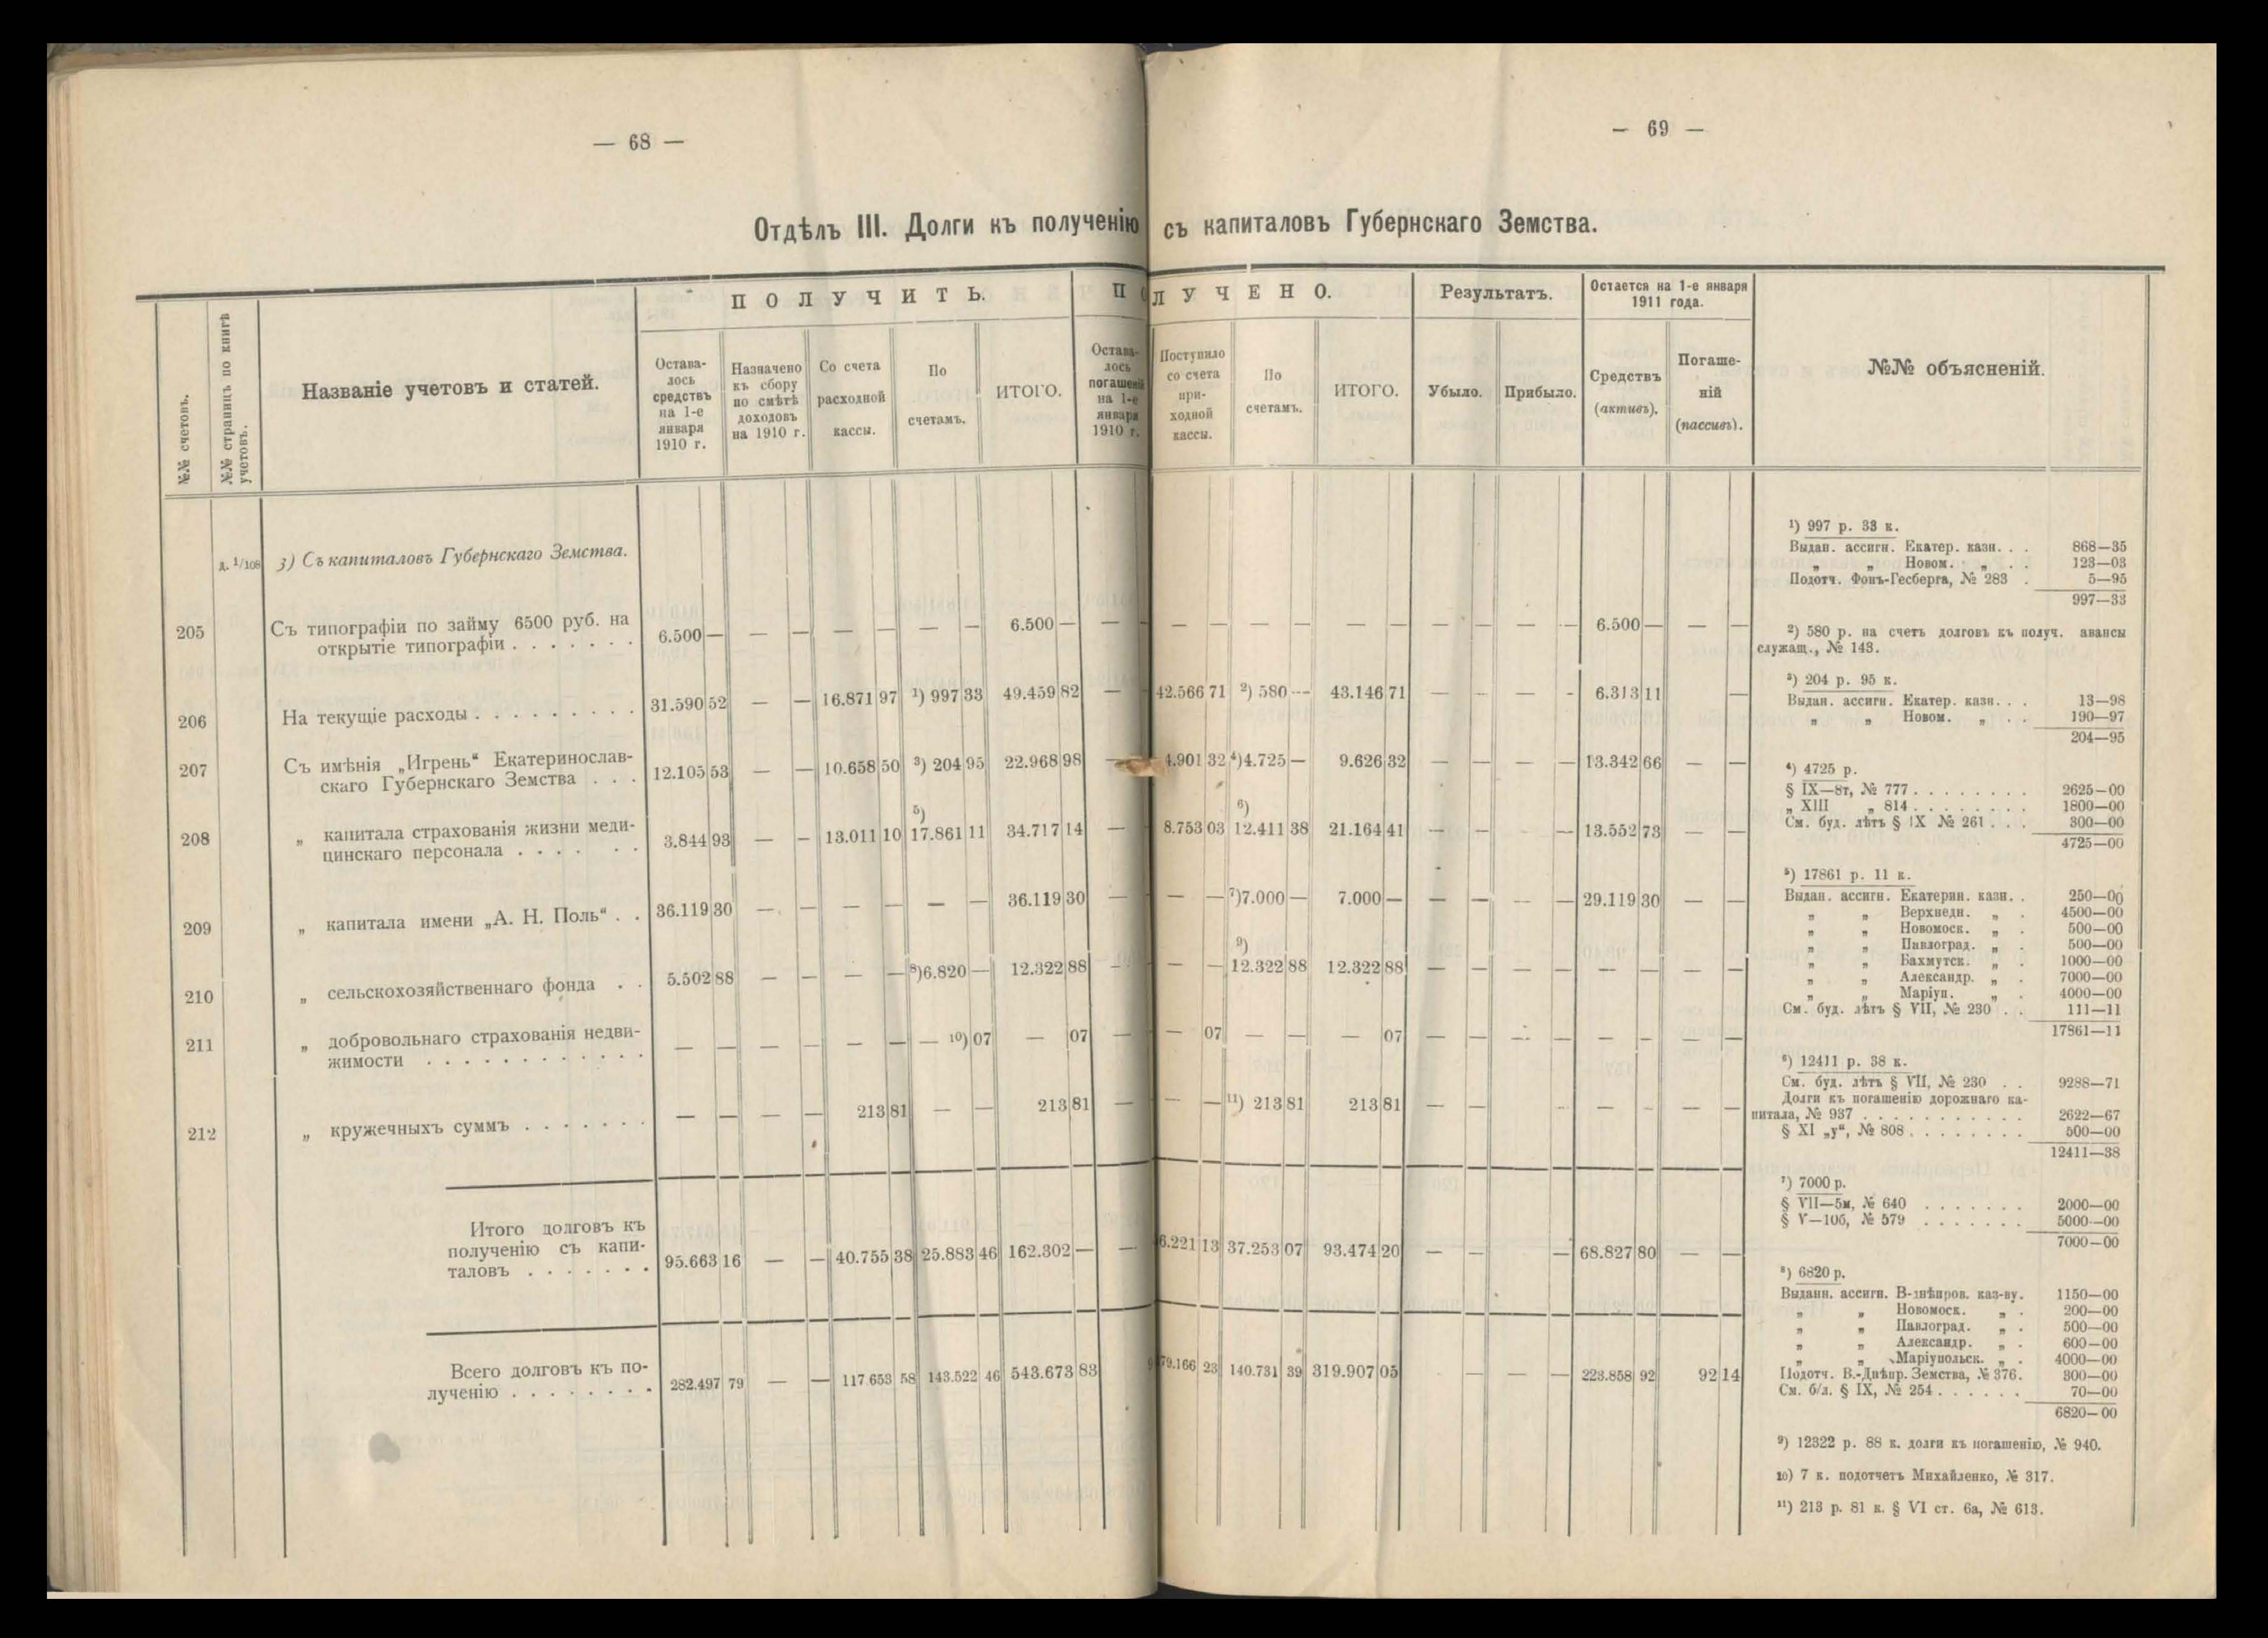 — 68 —
— 69 —
Отдѣлъ III. Долги къ полученію съ капиталовъ Губернскаго Земства.
№№ счетовъ.
№№ страницъ по книгѣ учетовъ.
Названіе учетовъ и статей.
ПОЛУЧИТЬ.
Остава-
лось
средствъ
на 1-е
января
1910 г.
Назначено
къ сбору
по смѣтѣ
доходовъ
на 1910 г.
Со счета
расходной
кассы.
По
счетамъ.
ИТОГО.
ПОЛУЧЕНО.
Остава-
лось
погашеній
на 1-е
января
1910 г.
Поступило
со счета
при-
ходной
кассы.
По
счетамъ.
ИТОГО.
Результатъ.
Убыло.
Прибыло.
Остается на 1-е января
1911 года.
Средствъ
(активъ).
Погаше-
ній
(пассивъ).
№№ объясненій.
д. 1/108 3) Съ капиталовъ Губернскаго Земства.
205 Съ типографіи по займу 6500 руб. на
открытіе типографіи . . . . . . . 6.500 — — — — — — — 6.500 — — — — — — — — — — — — 6.500 — — —
206 На текущіе расходы . . . . . . . . . 31.590 52 — — 16.871 97 ¹) 997 33 49.459 82 — - 42.566 71 ²) 580 — 43.146 71 — - — - 6.313 11 —
207 Съ имѣнія „Игрень“ Екатеринослав-
скаго Губернскаго Земства . . . 12.105 53 — — 10.658 50 ³) 204 95 22.968 98 — 4.901 32 ⁴) 4.725 — 9.626 32 — — — — 13.342 66 — —
208 „ капитала страхованія жизни меди-
цинскаго персонала . . . . . . 3.844 93 — — 13.011 10 ⁵) 17.861 11 34.717 14 — - 8.753 03 ⁶) 12.411 38 21.164 41 — — — 13.552 73 — —
209 „ капитала имени „А. Н. Поль“ . . 36.119 30 — — — — — — 36.119 30 — - — — ⁷) 7.000 — 7.000 — — — — — 29.119 30 — —
210 „ сельскохозяйственнаго фонда . . 5.502 88 — — — — ⁸) 6.820 — 12.322 88 — - — — ⁹) 12.322 88 12.322 88 — — — — — — — —
211 „ добровольнаго страхованія недви-
жимости . . . . . . . . . . . . — — — — — — — ¹⁰) 07 — 07 — - — 07 — — — 07 — — — — — - — —
212 „ кружечныхъ суммъ . . . . . . . — — — — 213 81 — — 213 81 — - — — ¹¹) 213 81 213 81 — — — — — —
Итого долговъ къ
полученію съ капи-
таловъ . . . . . . . 95.663 16 — — 40.755 38 25.883 46 162.302 — — 6.221 13 37.253 07 93.474 20 — — — 68.827 80 — —
Всего долговъ къ по-
лученію . . . . . . . . 282.497 79 — — 117.653 58 143.522 46 543.673 83 79.166 23 140.731 39 319.907 05 — — — 223.858 92 92 14
¹) 997 р. 33 к.
Выдан. ассигн. Екатер. казн. . . 868—35
„ „ Новом. „ . . 123—03
Подотч. Фонъ-Гесберга, № 283 . 5—95
997—33
²) 580 р. на счетъ долговъ къ получ. авансы
служащ., № 143.
³) 204 р. 95 к.
Выдан. ассигн. Екатер. казн. . . 13—98
„ „ Новом. „ . . 190—97
204—95
⁴) 4725 р.
§ IX—8т, № 777 . . . . . . . . 2625—00
„ XIII „ 814 . . . . . . . . 1800—00
См. буд. лѣтъ § IX № 261 . . . 300—00
4725—00
⁵) 17861 р. 11 к.
Выдан. ассигн. Екатерин. казн. . 250—00
„ „ Верхнедн. „ . 4500—00
„ „ Новомоск. „ . 500—00
„ „ Павлоград. „ . 500—00
„ „ Бахмутск. „ . 1000—00
„ „ Александр. „ . 7000—00
„ „ Маріуп. „ . 4000—00
См. буд. лѣтъ § VII, № 230 . . 111—11
17861—11
⁶) 12411 р. 38 к.
См. буд. лѣтъ § VII, № 230 . . 9288—71
Долги къ погашенію дорожнаго ка-
питала, № 937 . . . . . . . . . . . 2622—67
§ XI „у“, № 808 . . . . . . . . 500—00
12411—38
⁷) 7000 р.
§ VII—5м, № 640 . . . . . . . 2000—00
§ V—10б, № 579 . . . . . . . 5000—00
7000—00
⁸) 6820 р.
Выданн. ассигн. В-днѣпров. каз-ву. 1150—00
„ „ Новомоск. „ . 200—00
„ „ Павлоград. „ . 500—00
„ „ Александр. „ . 600—00
„ „ Маріупольск. „ . 4000—00
Подотч. В.-Днѣпр. Земства, № 376. 300—00
См. б/л. § IX, № 254 . . . . . . 70—00
6820—00
⁹) 12322 р. 88 к. долги къ погашенію, № 940.
¹⁰) 7 к. подотчетъ Михайленко, № 317.
¹¹) 213 р. 81 к. § VI ст. 6а, № 613.